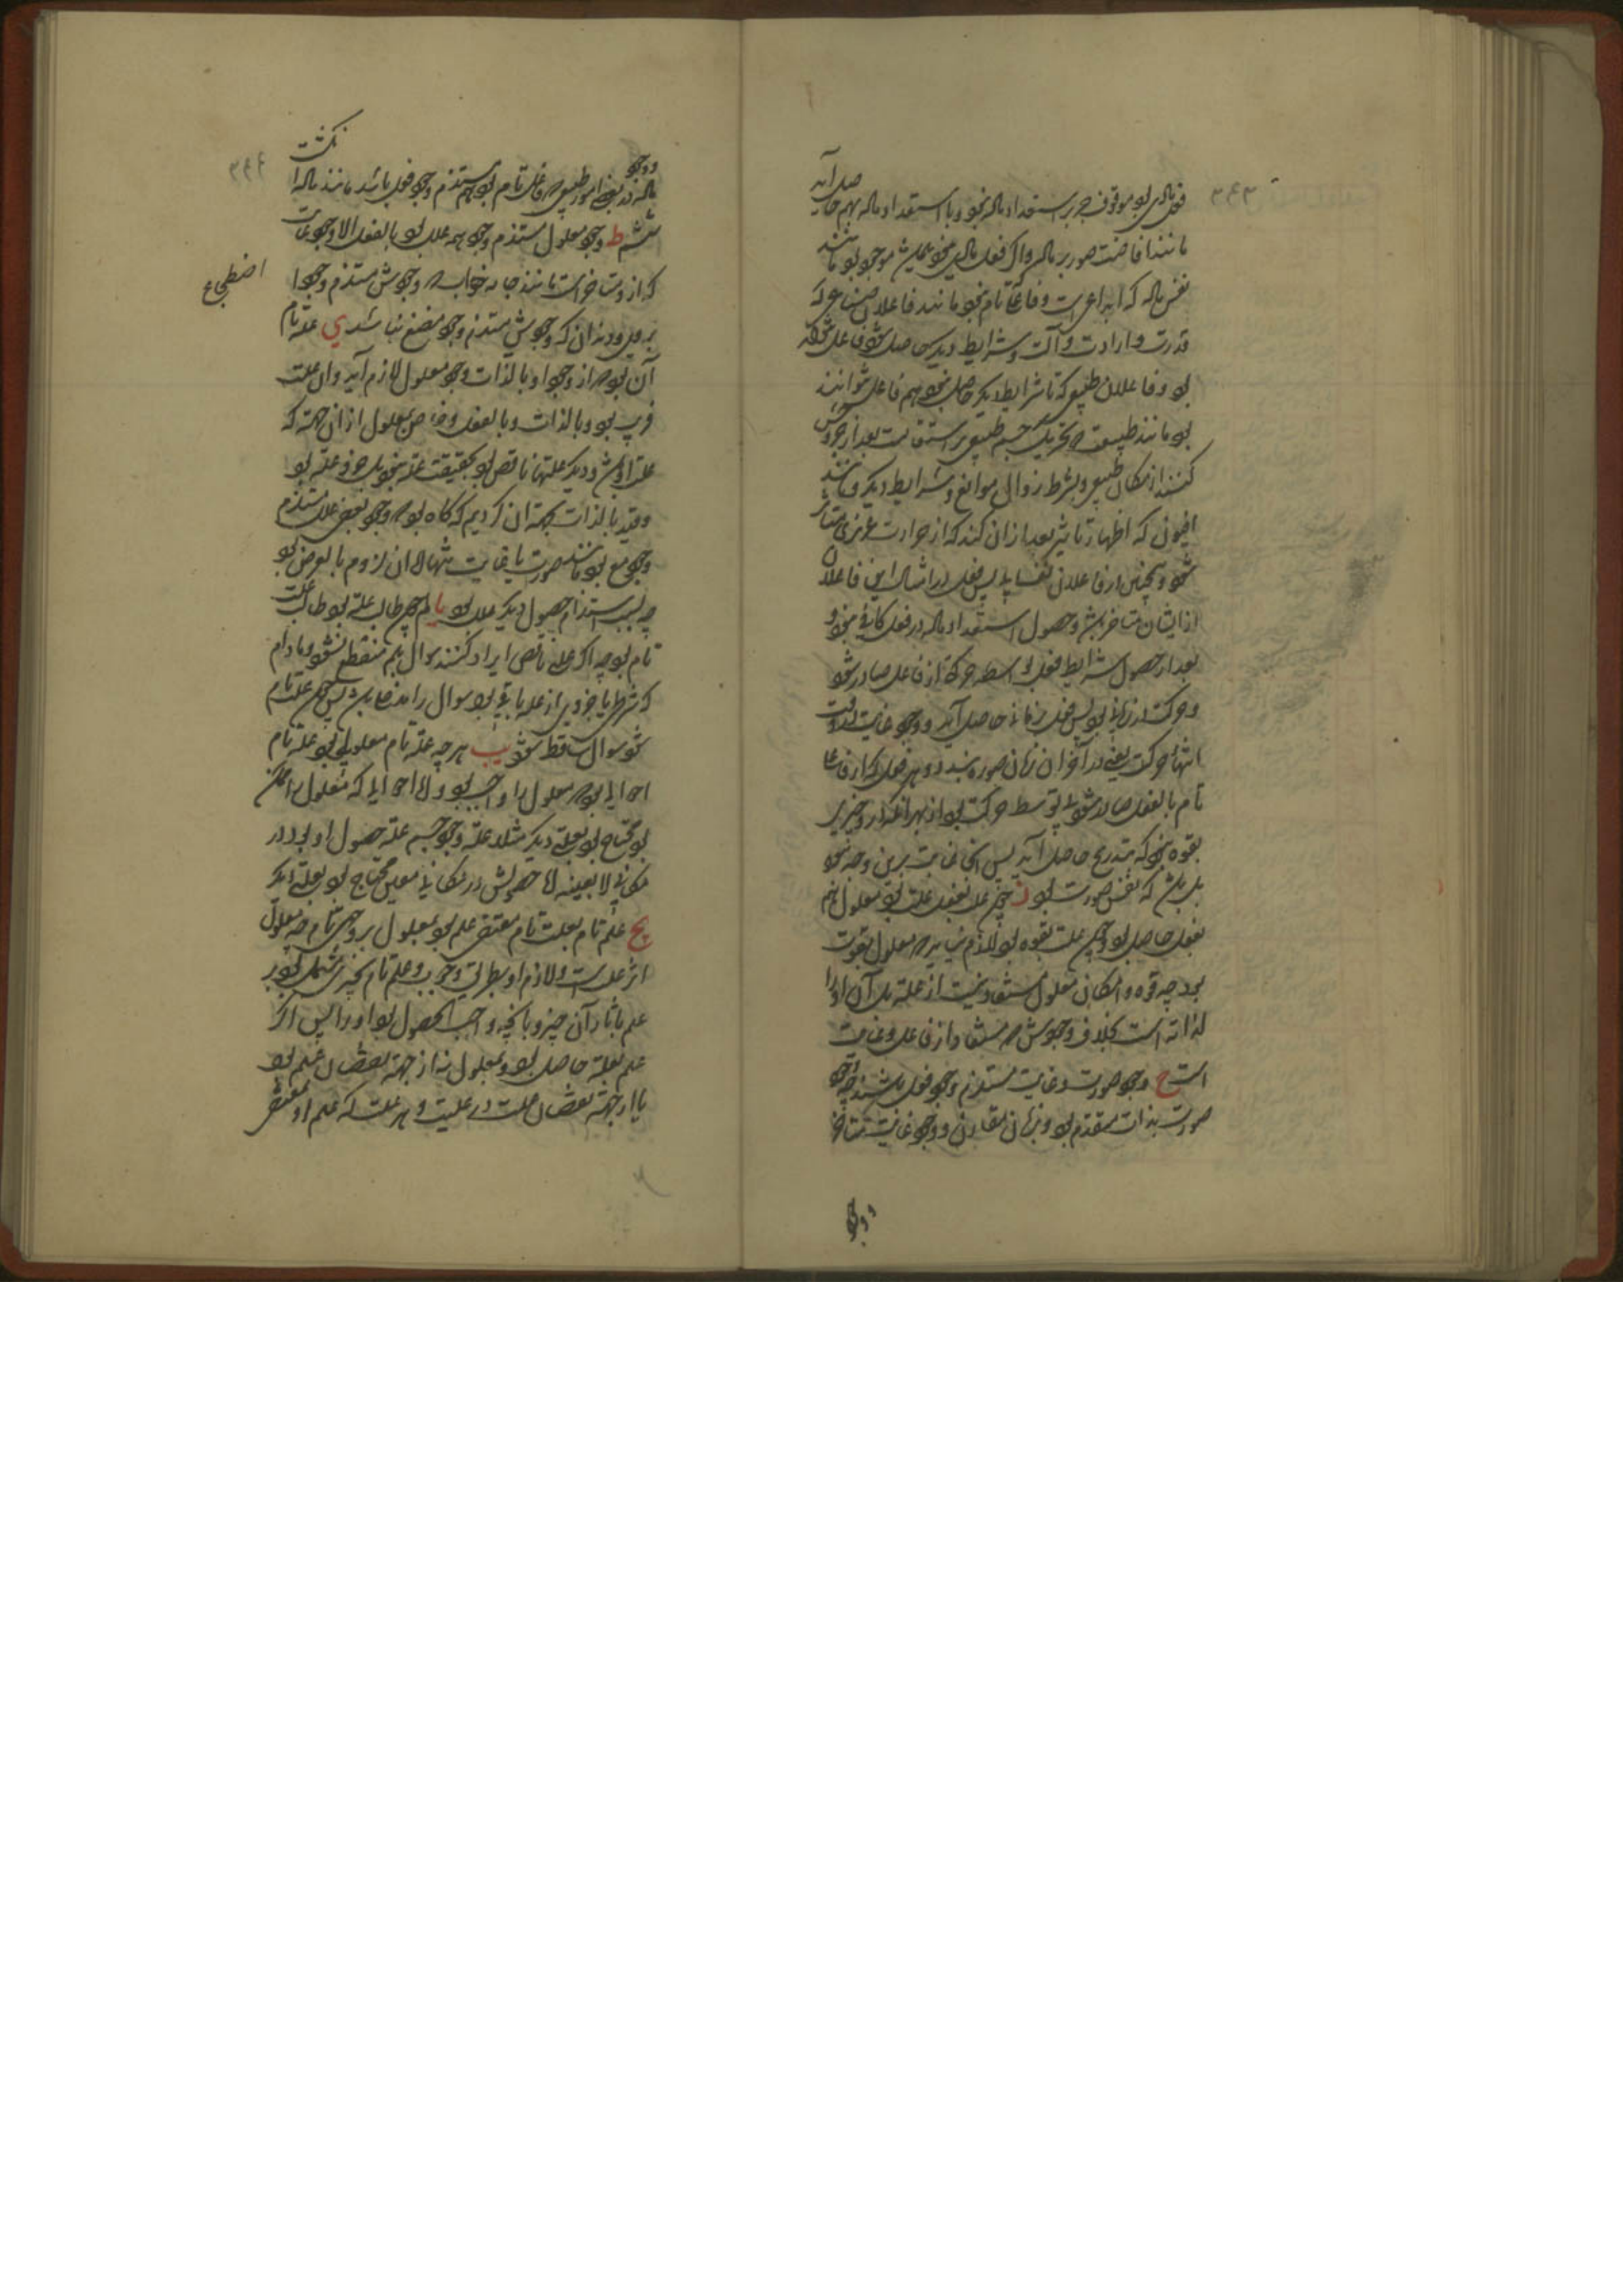 فعل مادی بود موقوف بر استعداد ماده نبود و با استعداد ماده بهم حاصل آید
مانند افاضت صور بر ماده و اگر فعل مادی نبود موجود بود مانند
نفس ماده که ابداعی است و فاعل تام نبود مانند فاعلان صناعی که
قدرت و ارادت و آلت و شرایط دیگر حاصل شود فاعل
بود و فاعلان طبیعی که تا شرایط دیگر حاصل نبود هم فاعل نتوانند
بود مانند طبیعت در تحریک جسم طبیعی بر استقامت بعد از خروجش
از مکان طبیعی و بشرط زوال موانع و شرایط دیگر و مانند
افیون که اظهار تاثیر بعد از آن کند که از حرارت غریزی متاثر
شود و همچنین از فاعلان نفسانی پس فعل در امثال این فاعلان
از ایشان متاخر باشد و حصول استعداد ماده در فعل کافی نبود و
بعد از حصول شرایط فعل بواسطه حرکة از فاعل صادر شود
و حرکت در زمانی بود پس فعل بزمانی حاصل آید و وجود غایت در وقت
انتهاء حرکت یعنی در آخر آن زمان صورت بندد و هر فعل که از فاعل
تام بالفعل صادر شود بی توسط حرکت بود از بهر آنکه او را چیزی
بقوه نبود که بتدریج حاصل آید پس آنجا غایت برین وجه نبود
بل باشد که نفس صورت بود ز چون علل بفعل علت بود معلول هم
بفعل حاصل بود و چون علت بقوه بود لازم نیاید که معلول بقوت
بود چه قوه و امکان معلول مستفاد نیست از علة بل آن او را
لذاته است بخلاف وجودش که مستفاد از فاعل و غایت
است ح وجود صورت و غایت مستلزم وجود فعل باشند چه وجود
صورت بذات متقدم بود و بزمان مقارن و وجود غایت متاخر
و وجود
ماده در بعضی امور طبیعی که فاعل تام بود هم مستلزم وجود فعل باشد مانند ماده
ط وجود معلول مستلزم وجود همه علل بود بالفعل الا وجود غایت
که از و متاخر است مانند جامه خواب که وجودش مستلزم وجود
اضطجاع
بروی و نه آن که وجودش مستلزم وجود مصنع نباشد ی علة تام
آن بود که از وجود او بالذات وجود معلول لازم آید و آن علت
قریب بود و بالذات و بالفعل و خاص بمعلول از آن جهة که
علة او باشد و دیگر علتها ناقص بود بحقیقت علة نبود بل جزو علة بود
و قید بالذات بجهة آن کردیم که گاه بود که وجود بعضی علل مستلزم
وجود مع بود مانند صورت یا غایت تنها الا آن لزوم بالعرض بود
چه بسبب استلزام حصول دیگر علل بود یا لم چون طالب علة بود طالب علت
تام بود چه اگر علة ناقص ایراد کنند سوال بلم منقطع نشود و مادام
که شرطی یا جزوی از علة باقی بود سوال را مدخل باشد پس چون علة تام
شود سوال ساقط شود یب هر چه علة تام معلولی بود علة تام
اجزای بود که معلول را واجب بود و لا اجزایی که معلول را ممکن
بود محتاج بود بعلة دیگر مثلا علة وجود جسم علة حصول او بود در
مکانی لا بعینه اما حصولش در مکانی معین محتاج بود بعلة دیگر
یج علم تام بعلت تام مقتضی علم بود بمعلول بر وجهی تام چه معلول
اثر علت است و لازم او بطریق وجوب و علم تام بچیزی مشتمل بود بر
علم بآثار آن چیز و بآنچه واجب الحصول بود او را پس اگر
علم بعلة حاصل بود و بمعلول نه از جهة نقصان علم بود
یا از جهة نقصان علت در علیت و هر علت که علم او مقتضی